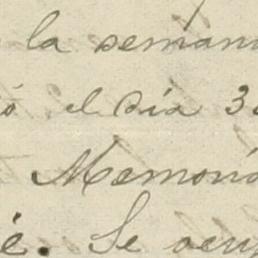 la semana
ó el día 3
Memoria
é. Se ocup